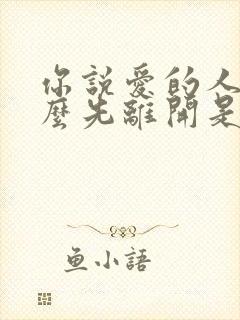 你說愛的人
麼先離開是
魚小語